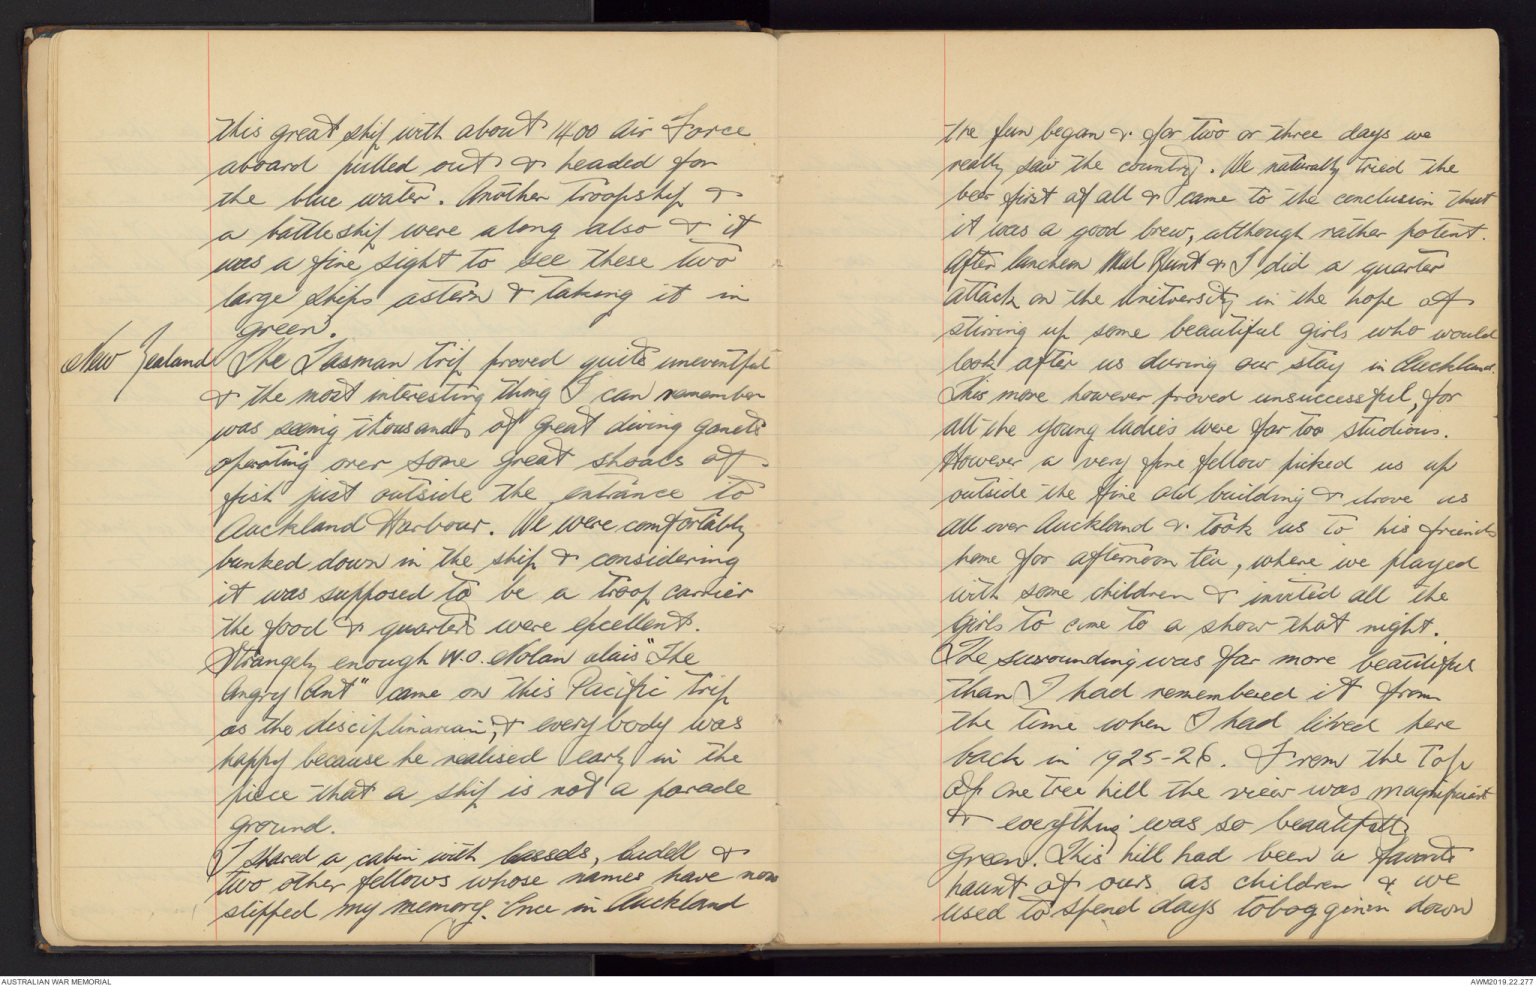 this great ship with about 1400 Air Force
aboard pulled out & headed for
the blue water. Another troopship &
a battleship were along also & it
was a fine sight to see these two
large ships astern & taking it in
green.
New Zealand
The Tasman trip proved quite uneventful
& the most interesting thing I can remember
was seeing thousands of great diving ganets
operating over some great shoals of
fish just outside the entrance to
Auckland Harbour. We were comfortably
bunked down in the ship & considering
it was supposed to be a troop carrier
the food & quarters were excellent.
Strangely enough W.O. Nolan alais "The
Angry Ant" came on this Pacific trip
as the disciplinarian, & everybody was
happy because he realised early in the
piece that a ship is not a parade
ground.
I shared a cabin with , &
two other fellows whose names have now
slipped my memory. Once in Auckland
the fun began & for two or three days we
really saw the country. We naturally tried the
beer first of all & I came to the conclusion that
it was a good brew, although rather potent.
After luncheon Mal & I did a quarter
attack on the University in the hope of
stirring up some beautiful girls who would
look after us during our stay in Auckland.
This move however proved unsuccessful, for
all the young ladies were far too studious.
However a very fine fellow picked us up
outside the fine old building & drove us
all over Auckland & took us to his friends
home for afternoon tea, where we played
with some children & invited all the
girls to come to a show that night.
The surrounding was far more beautiful
than I had remembered it from
the time when I had lived here
back in 1925-26. From the top
of One Tree hill the view was magnificant
& everything was so beautifully
green. This hill had been a favorite
haunt of ours as children & we
used to spend days tobogginin down
AUSTRALIAN WAR MEMORIAL
AWM2019.22.277